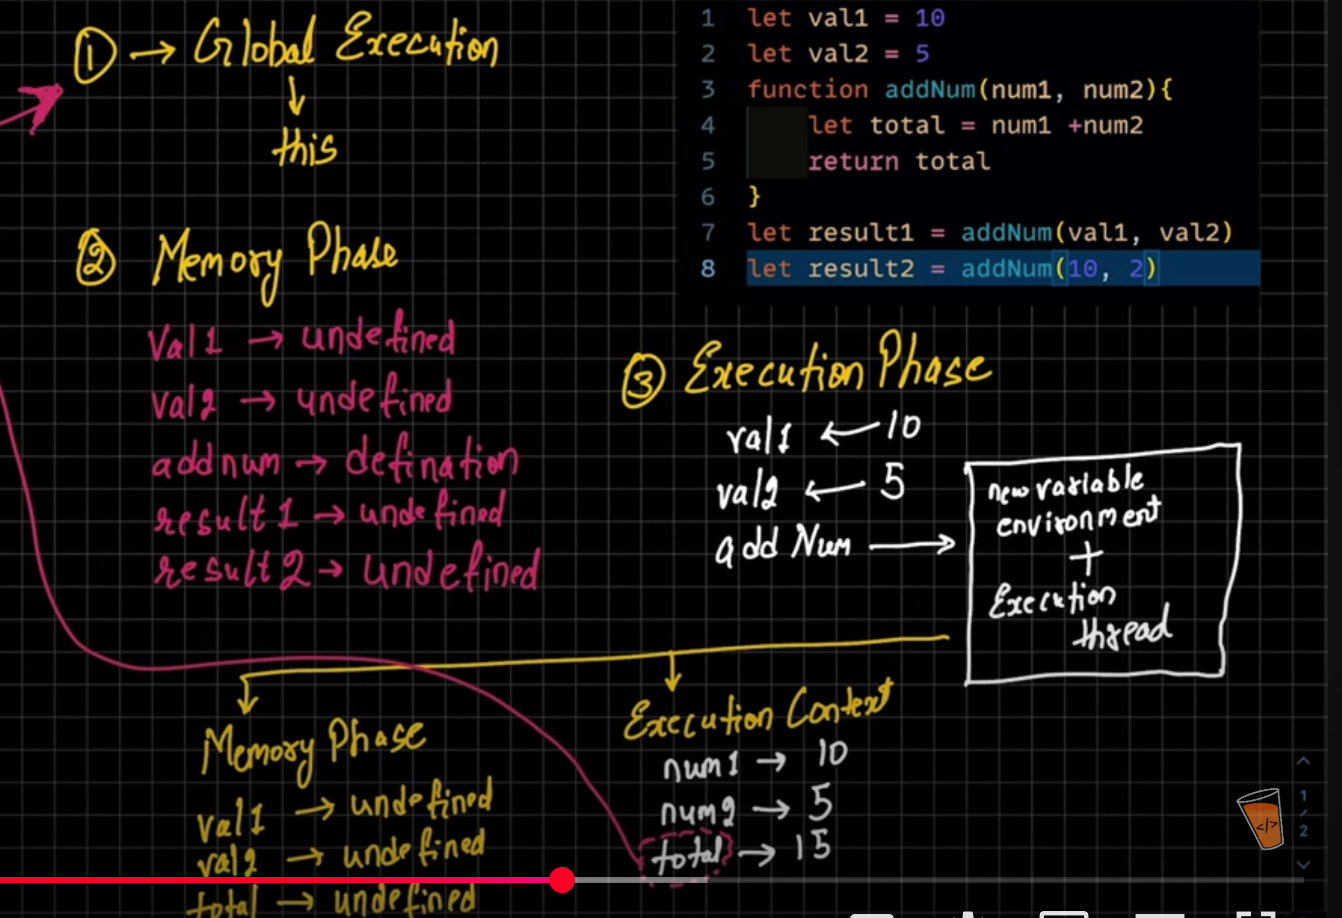 ① → Global Execution
↓
this
② Memory Phase
Val1 → undefined
val2 → undefined
addnum → defination
result1 → undefined
result2 → undefined
1 let val1 = 10
2 let val2 = 5
3 function addNum(num1, num2){
4 let total = num1 +num2
5 return total
6 }
7 let result1 = addNum(val1, val2)
8 let result2 = addNum(10, 2)
③ Execution Phase
val1 ← 10
val2 ← 5
add Num →
new variable
environment
+
Execution
thread
Memory Phase
val1 → undefined
val2 → undefined
total → undefined
Execution Context
num1 → 10
num2 → 5
total → 15
</>
1
/
2